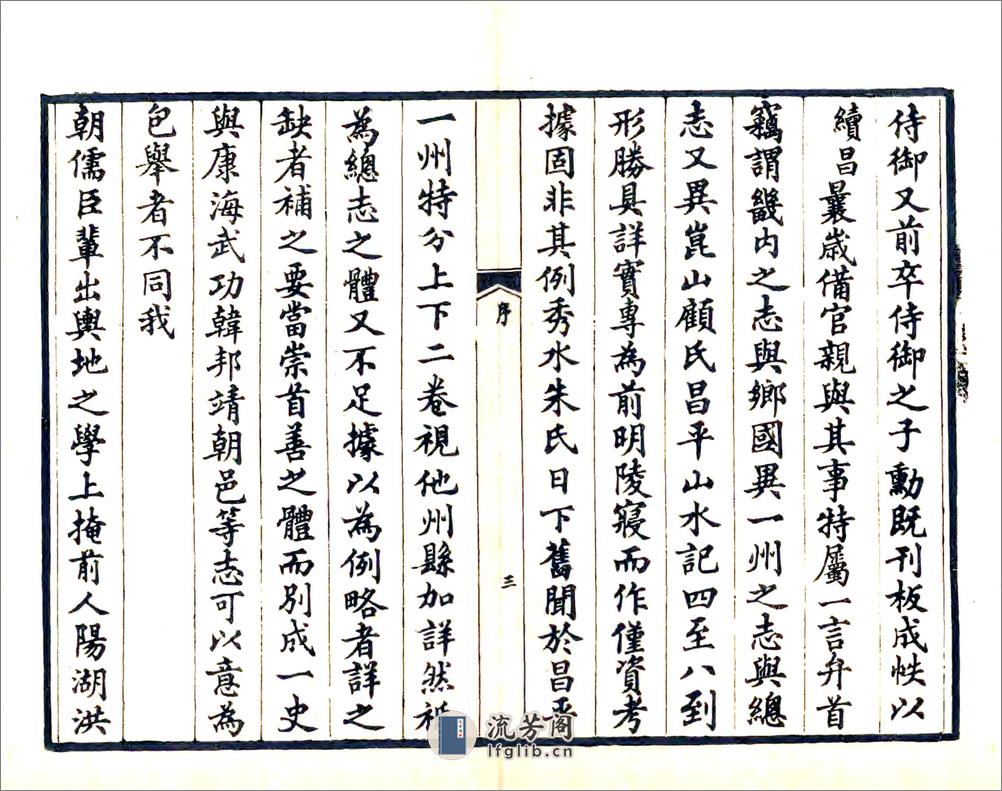 侍御又前卒侍御之子勳既刊板成帙以
續昌曩歲備官親與其事特屬一言弁首
竊謂畿内之志與鄉國異一州之志與總
志又異崑山顧氏昌平山水記四至八到
形勝具詳實專為前明陵寢而作僅資考
據固非其例秀水朱氏日下舊聞於昌平
序
三
一州特分上下二卷視他州縣加詳然祇
為總志之體又不足據以為例略者詳之
缺者補之要當崇首善之體而別成一史
與康海武功韓邦靖朝邑等志可以意為
包舉者不同我
朝儒臣輩出輿地之學上掩前人陽湖洪
流芳阁
lfglib.cn